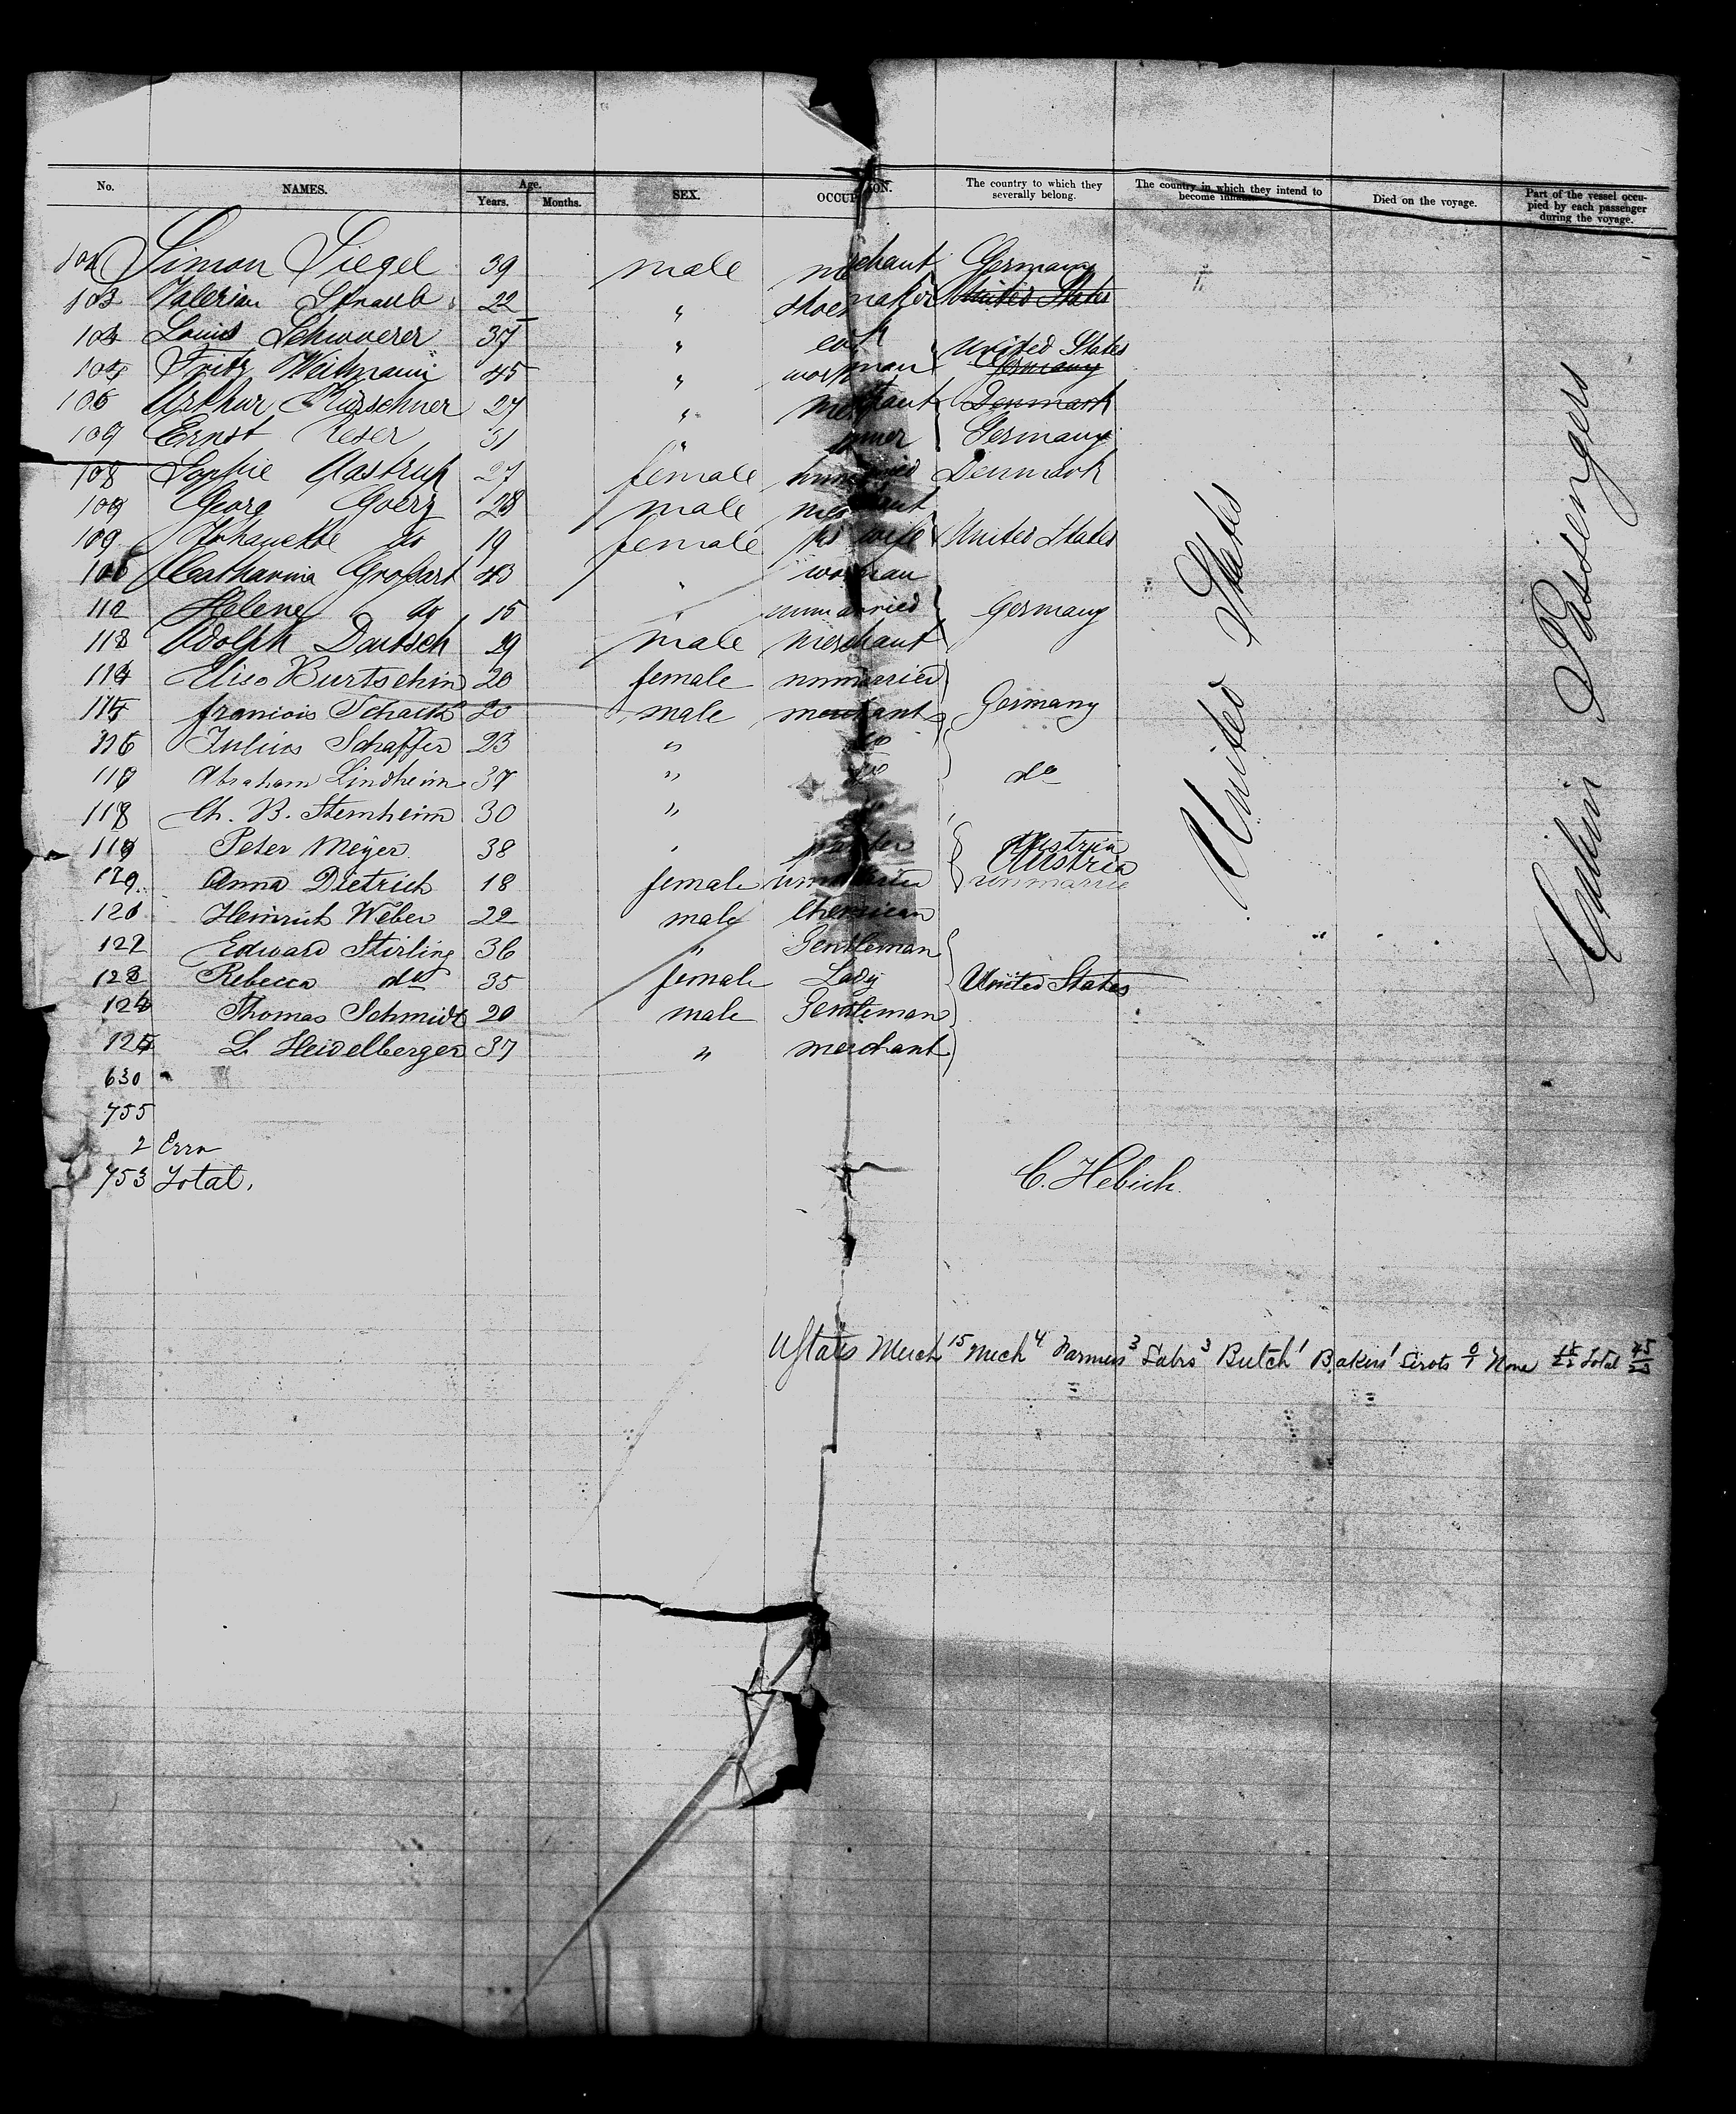 No. NAMES. Age. Years. Months. SEX. OCCUPATION. The country to which they severally belong. The country in which they intend to become inhabitants. Died on the voyage. Part of the vessel occupied by each passenger during the voyage.
102 Simon Siegel 39 male merchant Germany
103 Valerian Straub 22 " shoemaker United States
104 Louis Schwoerer 37 " cook United States
Fritz Weihmann 45 " workman Germany
106 Arthur Kürschner 27 " merchant Denmark
107 Ernst Reser 31 " Germany
108 Sophie Aastrup 27 female unmarried Denmark
109 Georg Goerz 28 male merchant
109 Johanette do 19 female his wife United States
Catharina Großart 43 " woman
112 Helene do 15 " unmarried Germany
113 Adolph Dautsch 29 male merchant
114 Elise Burtschin 20 female unmarried
115 franiois Schack 20 male merchant Germany
116 Julius Schaffer 23 " do
117 Abraham Lindheim 37 " do do
118 Ch. B. Sternheim 30 "
119 Peter Meyer 38 " Austria Austria
120 Anna Dietrich 18 female unmarried unmarrie
121 Heinrich Weber 22 male Chemican
122 Edward Stirling 36 " Gentleman
123 Rebecca do 35 female Lady United States
124 Thomas Schmidt 20 male Gentleman
125 L. Heidelberger 37 " merchant
United States
Cabin Passengers
630
755
2 Erro
753 Total.
C. Hebich.
UStates Merch 15 Mech 4 Farmers 3 Labrs 3 Butch 1 Bakers 1 None Total